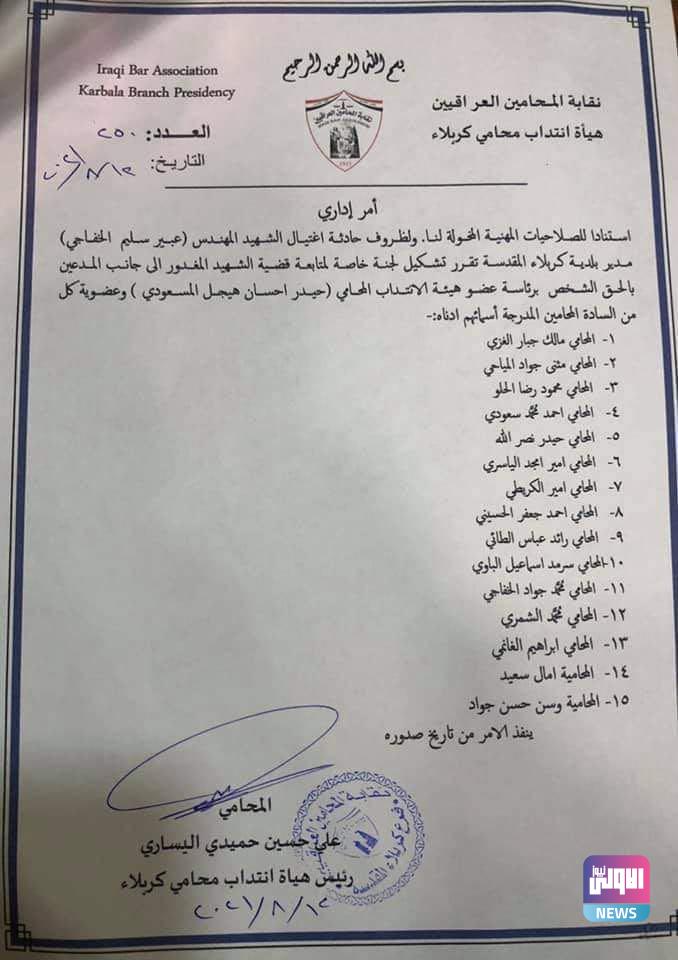 بسم الله الرحمن الرحيم
Iraqi Bar Association
Karbala Branch Presidency
نقابة المحامين العراقيين
هيأة انتداب محامي كربلاء
نقابة المحامين العراقيين
IRAQI BAR ASSOCIATION
1933
العدد: ٢٥٠
التاريخ:
أمر إداري
استنادا للصلاحيات المهنية المخولة لنا. ولظروف حادثة اغتيال الشهيد المهندس (عبير سليم الخفاجي)
مدير بلدية كربلاء المقدسة تقرر تشكيل لجنة خاصة لمتابعة قضية الشهيد المغدور الى جانب المدعين
بالحق الشخص برئاسة عضو هيئة الانتداب المحامي (حيدر احسان هيجل المسعودي ) وعضوية كل
من السادة المحامين المدرجة أسمائهم ادناه:-
١- المحامي مالك جبار الغزي
٢- المحامي مثنى جواد المياحي
٣- المحامي محمود رضا الحلو
٤- المحامي احمد محمد سعودي
٥- المحامي حيدر نصر الله
٦- المحامي امير امجد الياسري
٧- المحامي امير الكريطي
٨- المحامي احمد جعفر الحسيني
٩- المحامي رائد عباس الطائي
١٠-المحامي سرمد اسماعيل الباوي
١١- المحامي محمد جواد الخفاجي
١٢- المحامي محمد الشمري
١٣- المحامي ابراهيم الغانمي
١٤- المحامية امال سعيد
١٥- المحامية وسن حسن جواد
ينفذ الامر من تاريخ صدوره
المحامي
علي حسين حميدي اليساري
رئيس هيأة انتداب محامي كربلاء
٢٠٢١/٨/١٢
نقابة المحامين العراقيين
فرع كربلاء المقدسة
الاولى نيوز
NEWS